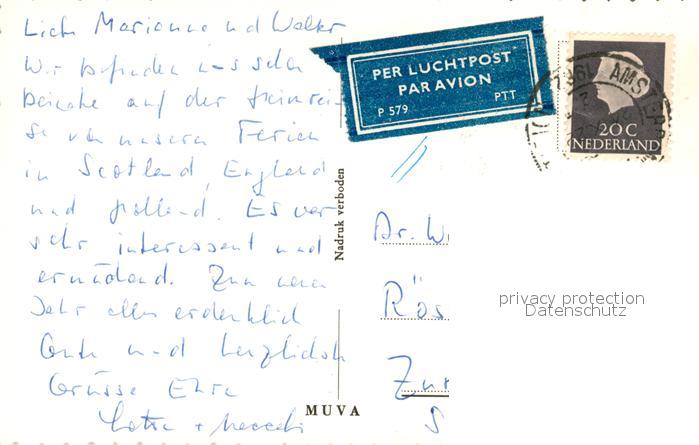 Liebe Marianne und Walter
Wir befinden uns schon
beinahe auf der Heimrei-
se von unseren Ferien
in Scotland, England
und Holland. Es war
sehr interessant und
ermüdend. Zum neuen
Jahr alles erdenklich
Gute und herzlichste
Grüsse Eure
PER LUCHTPOST
PAR AVION
P 579 PTT
AMS
20 C
NEDERLAND
Nadruk verboden
Dr. W
Rös
Zür
S
MUVA
privacy protection
Datenschutz